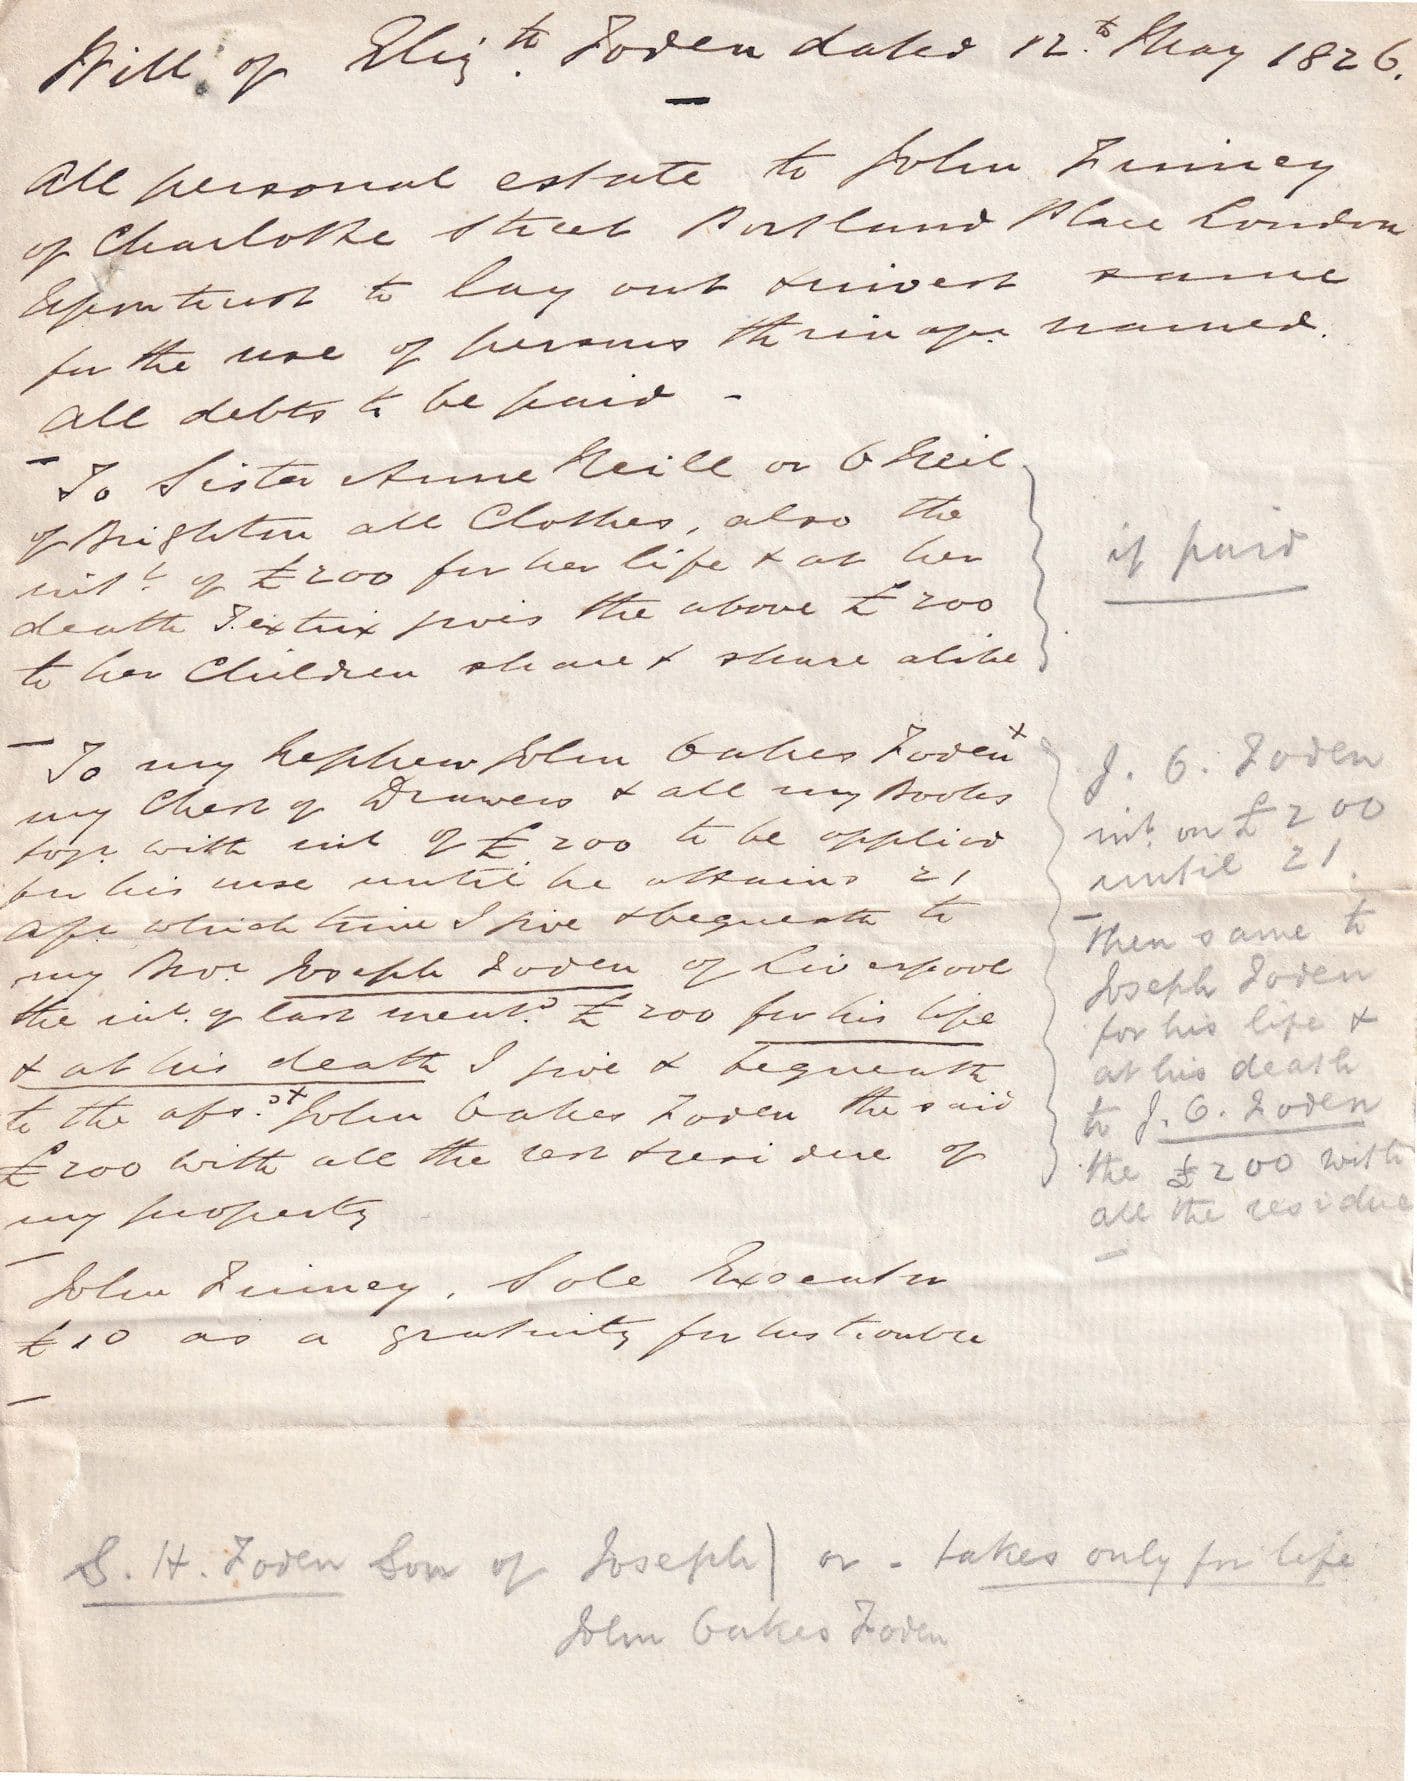 Will of Eliz.th Foden dated 12.th May 1826.
All personal estate to John Finney
of Charlotte Street Portland Place London
Upon trust to lay out & invest same
for the use of persons thrinafr. named.
All debts to be paid -
To Sister Anne Neill or O Neil
of Brighton all Clothes, also the
int.t of £200 for her life & at her
death T.extrix gives the above £200
to her Children share & share alike
if paid
To my Nephew John Oakes Foden x
my Chest of Drawers & all my Books
togr. with int of £200 to be applied
for his use until he attains 21
afr which time I give & bequeath to
my Bror. Joseph Foden of Liverpool
the int. of last ment.d £200 for his life
& at his death I give & bequeath
to the afs.d x John Oakes Foden the said
£200 with all the rest & residue of
my property
J. O. Foden
int. on £200
until 21.
Then same to
Joseph Foden
for his life &
at his death
to J. O. Foden
the £200 with
all the residue
John Finney. Sole Executor
£10 as a gratuity for his trouble
S. H. Foden Son of Joseph) or - takes only for life
John Oakes Foden